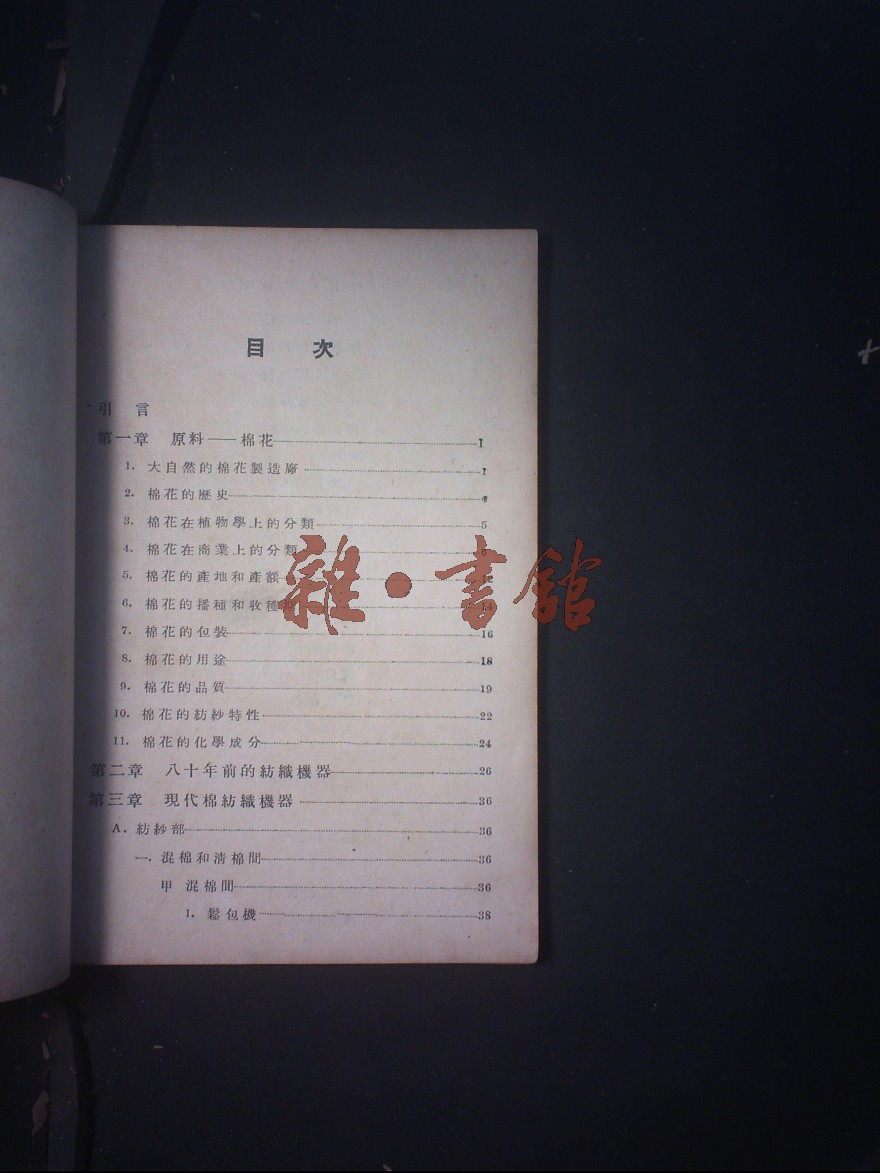 目 次
引 言
第一章 原料——棉花 1
1. 大自然的棉花製造廠 1
2. 棉花的歷史 4
3. 棉花在植物學上的分類 5
4. 棉花在商業上的分類 6
5. 棉花的產地和產額 12
6. 棉花的播種和收穫 14
7. 棉花的包裝 16
8. 棉花的用途 18
9. 棉花的品質 19
10. 棉花的紡紗特性 22
11. 棉花的化學成分 24
第二章 八十年前的紡織機器 26
第三章 現代棉紡織機器 36
A. 紡紗部 36
一. 混棉和清棉間 36
甲 混棉間 36
1. 鬆包機 38
雜·書館